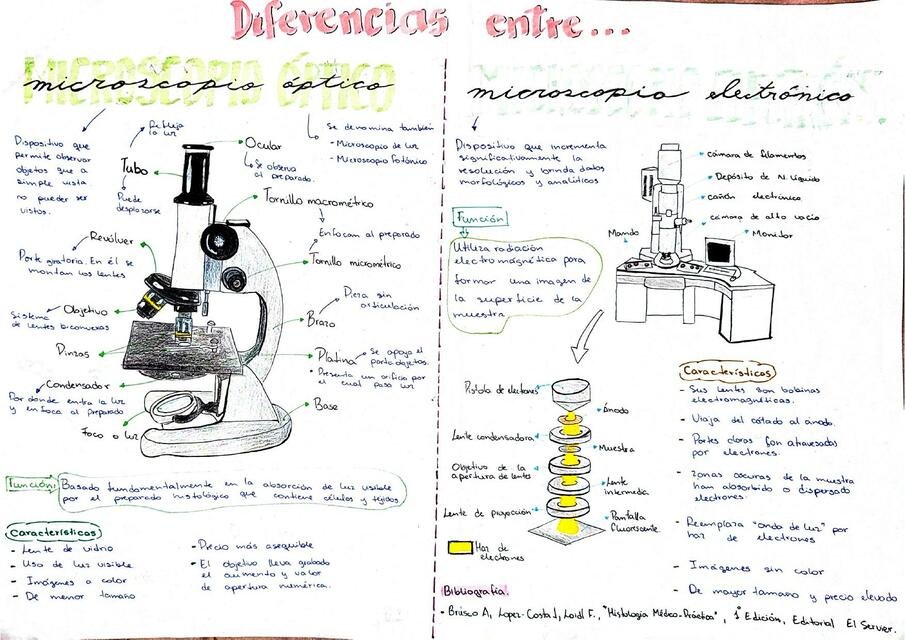 Diferencias entre...
microscopio óptico
Dispositivo que
permite observar
objetos que a
simple vista
no pueder ser
vistos.
Refleja
la luz
Tubo
Puede
desplazarse
Ocular
Se observa
el preparado.
Se denomina también
- Microscopio de luz
- Microscopio Fotónico
Tornillo macrométrico
Enfocan al preparado
Tornillo micrométrico
Revólver
Parte giratoria. En él se
montan los lentes
Pieza sin
articulación
Brazo
Objetivo
Sistema
de lentes biconvexas
Pinzas
Platina
Se apoya el
portaobjetos.
Presenta un orificio por
el cual pasa luz
Condensador
Por donde entra la luz
y enfoca al preparado
Base
Foco o luz
Función:
Basado fundamentalmente en la absorción de luz visible
por el preparado histológico que contiene células y tejidos
Características
- Lente de vidrio
- Uso de luz visible
- Imágenes a color
- De menor tamaño
- Precio más asequible
- El objetivo lleva grabado
el aumento y valor
de apertura numérica.
microscopio electrónico
Dispositivo que incrementa
significativamente la
resolución y brinda datos
morfológicos y analíticos
Función
Utiliza radiación
electromagnética para
formar una imagen de
la superficie de la
muestra.
cámara de filamentos
Depósito de N. Líquido
cañón electrónico
cámara de alto vacío
Monitor
Mando
Pistola de electrones
Ánodo
Lente condensadora
Muestra
Objetivo de la
apertura de lentes
Lente
intermedia
Lente de proyección
Pantalla
fluorescente.
Haz de
electrones
Características
- Sus lentes son bobinas
electromagnéticas.
- Viaja del cátodo al ánodo.
- Partes claras son atravesadas
por electrones.
- zonas oscuras de la muestra
han absorbido o dispersado
electrones.
- Reemplaza "onda de luz" por
haz de electrones
- Imágenes sin color
- De mayor tamano y precio elevado
Bibliografía.
- Brüsco A, Lopez-Costa J, Loidl F., "Histología Médico-Práctica", 1º Edición, Editorial El Server.